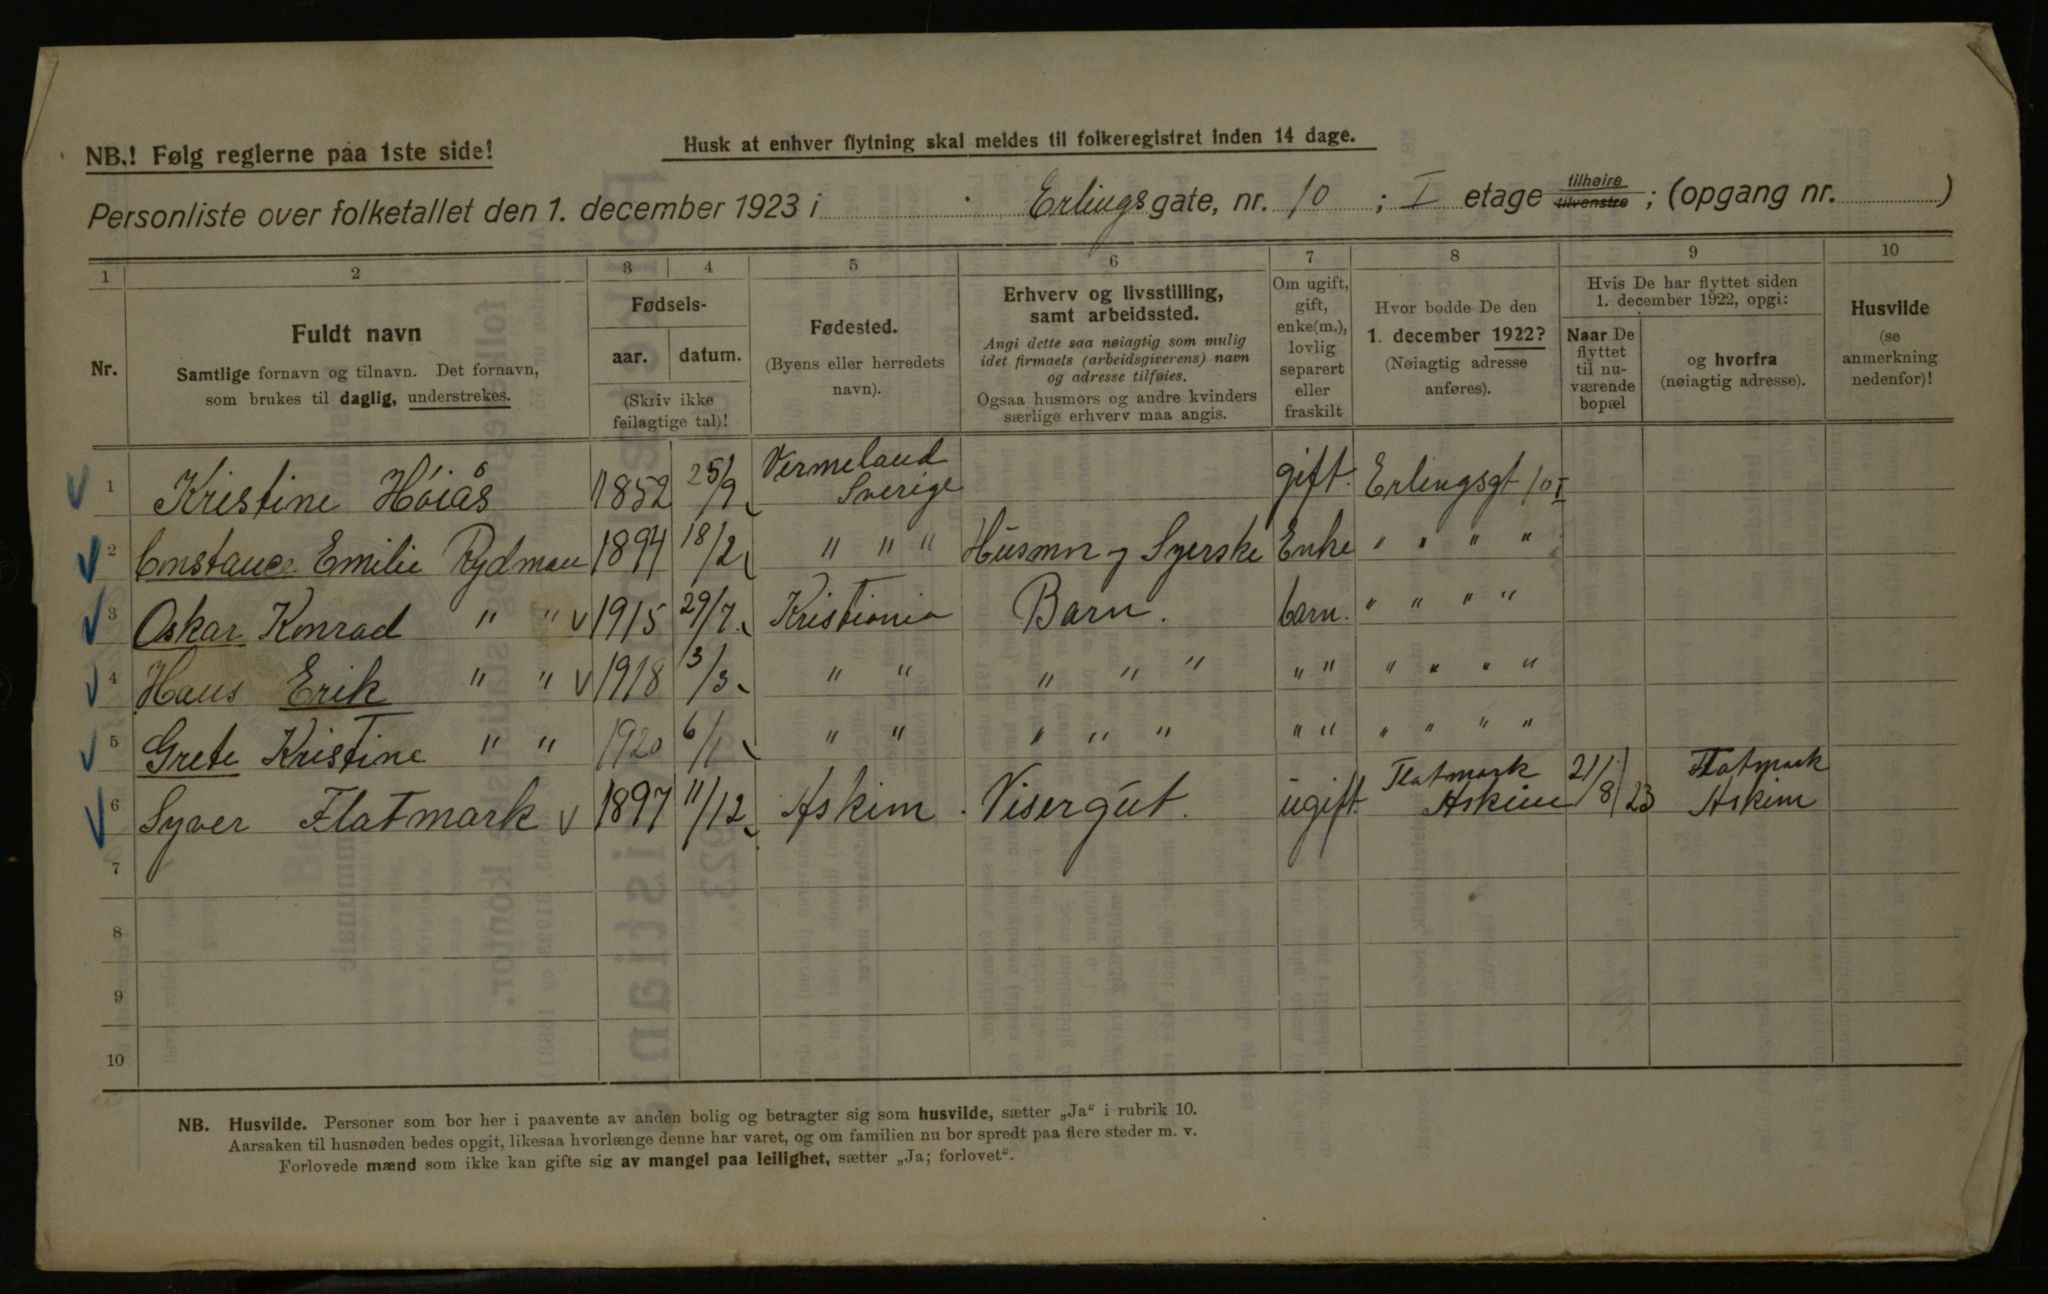 NB.! Følg reglerne paa 1ste side!
Husk at enhver flytning skal meldes til folkeregistret inden 14 dage.
Personliste over folketallet den 1. december 1923 i Erlingsgate, nr. 10 ; I etage tilhøire tilvenstre ; (opgang nr. )
1 2 3 4 5 6 7 8 9 10
Nr.
Fuldt navn
Samtlige fornavn og tilnavn. Det fornavn,
som brukes til daglig, understrekes.
Fødsels-
aar. datum.
(Skriv ikke
feilagtige tal)!
Fødested.
(Byens eller herredets
navn).
Erhverv og livsstilling,
samt arbeidssted.
Angi dette saa nøiagtig som mulig
idet firmaets (arbeidsgiverens) navn
og adresse tilføies.
Ogsaa husmors og andre kvinders
særlige erhverv maa angis.
Om ugift,
gift,
enke(m.),
lovlig
separert
eller
fraskilt
Hvor bodde De den
1. december 1922?
(Nøiagtig adresse
anføres).
Hvis De har flyttet siden
1. december 1922, opgi:
Naar De
flyttet
til nu-
værende
bopæl
og hvorfra
(nøiagtig adresse).
Husvilde
(se
anmerkning
nedenfor)!
1 Kristine Höiås 1852 25/9 Vermeland Sverige gift. Erlingsgt 10 I
2 Constance Emilie Rydman 1894 18/2 " " " Husmor og Syerske Enke " " " "
3 Oskar Konrad " " 1915 29/7 Kristiania Barn. barn. " " " "
4 Hans Erik " " 1918 3/3 " " " " " " " " " " "
5 Grete Kristine " " 1920 6/1 " " " " " " " " " " "
6 Syver Flatmark 1897 11/12 Askim Visergut. ugift. Flatmark Askim 21/8 23 Flatmark Askim
7
8
9
10
NB. Husvilde. Personer som bor her i paavente av anden bolig og betragter sig som husvilde, sætter „Ja" i rubrik 10.
Aarsaken til husnøden bedes opgit, likesaa hvorlænge denne har varet, og om familien nu bor spredt paa flere steder m. v.
Forlovede mænd som ikke kan gifte sig av mangel paa leilighet, sætter „Ja; forlovet".